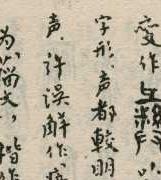 变作
字形、声都較明
声．许误解作
为籀文，皆作